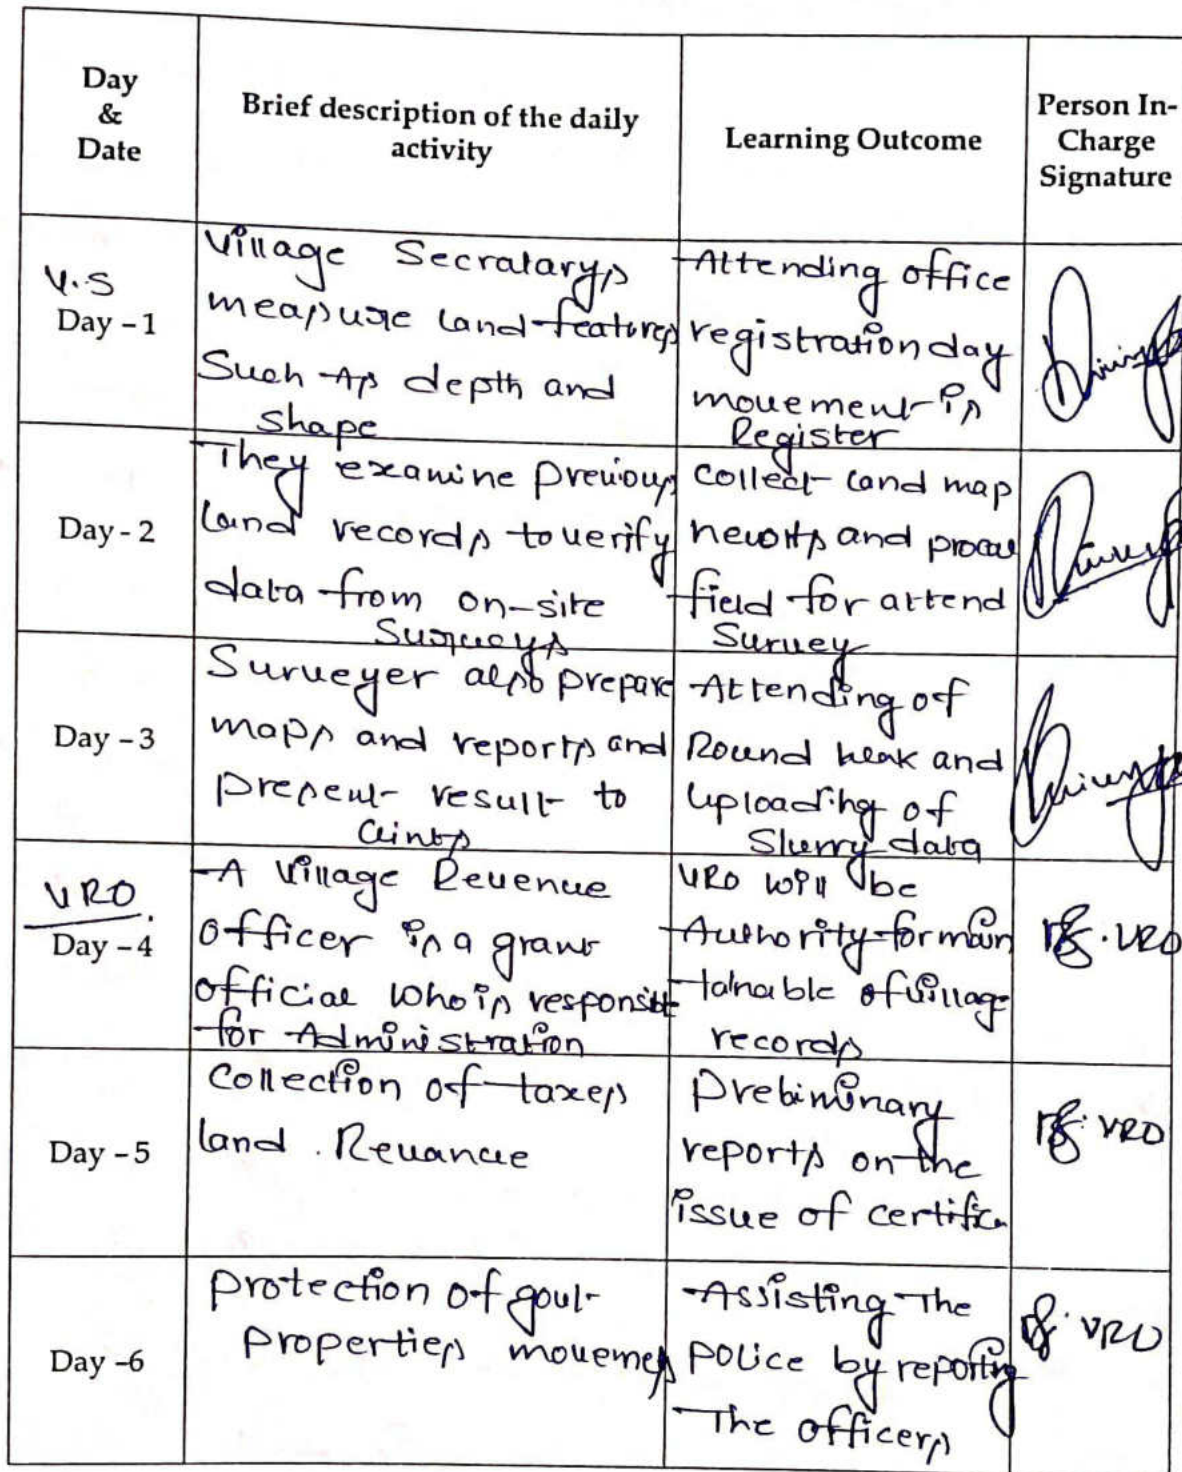 Day
&
Date
Brief description of the daily
activity
Learning Outcome
Person In-
Charge
Signature
V.S
Day - 1
Village Secratarys
measure land features
Such As depth and
shape
Attending office
registration day
movement is
Register
Day - 2
They examine previous
land records to verify
data from on-site
Surveys
collect land map
and
field for attend
Survey
Day - 3
Surveyer also prepare
maps and reports and
present result to
Attending of
Round and
uploading of
Slurry data
VRO
Day - 4
A Village Revenue
officer is a
official who is
for Administration
VRO will be
Authority for main
tainable of village
records
VRO
Day - 5
Collection of taxes
land . Revanue
Prebiminary
reports on the
issue of certifica
VRO
Day -6
protection of govt
properties
Assisting The
police by reporting
The officers
VRO